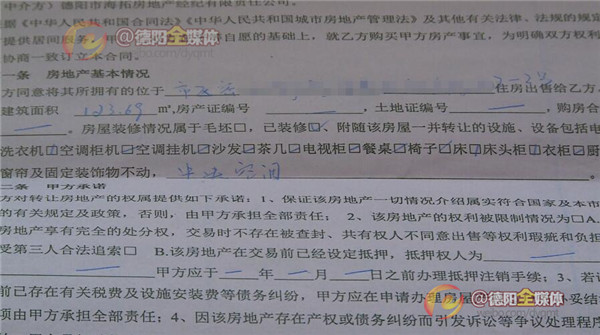 中介方）德阳市海拓房地产经纪有限责任公司。
根据《中华人民共和国合同法》《中华人民共和国城市房地产管理法》及其他有关法律、法规的规定
@德阳全媒体
提供居间服务，甲 自愿的基础上，就乙方购买甲方房产事宜，为明确双方权利
协商一致订立本合同。
一条 房地产基本情况
方同意将其所有的位于 住房出售给乙方、
建筑面积 123.69 ㎡,房产证编号 — ，土地证编号 — ，购房合
— 。房屋装修情况属于毛坯□，已装修☑、附随该房屋一并转让的设施、设备包括电
洗衣机☑空调柜机☑空调挂机☑沙发☑茶几☑电视柜☑餐桌☑椅子☑床☑床头柜☑衣柜☑厨
窗帘及固定装饰物不动， 中央空调
二条 甲方承诺
方对转让房地产的权属提供如下承诺：1、保证该房地产一切情况介绍属实符合国家及本市
的有关规定及政策，否则，由甲方承担全部责任； 2、该房地产的权利被限制情况为□A.
房地产享有完全的处分权，交易时不存在被查封、共有权人不同意出售等权利瑕疵和负担
受第三人合法追索□ B.该房地产在交易前已经设定抵押，抵押权人为 —
— 甲方应于 — 年 — 月 — 日之前办理抵押注销手续；3、若该
前已存在有关税费及设施安装费等债务纠纷，甲方应在申请办理房屋 办妥结
@德阳全媒体
项由甲方承担全部责任；4、因该房地产存在产权或债务纠纷而引发诉讼等争议处理程序